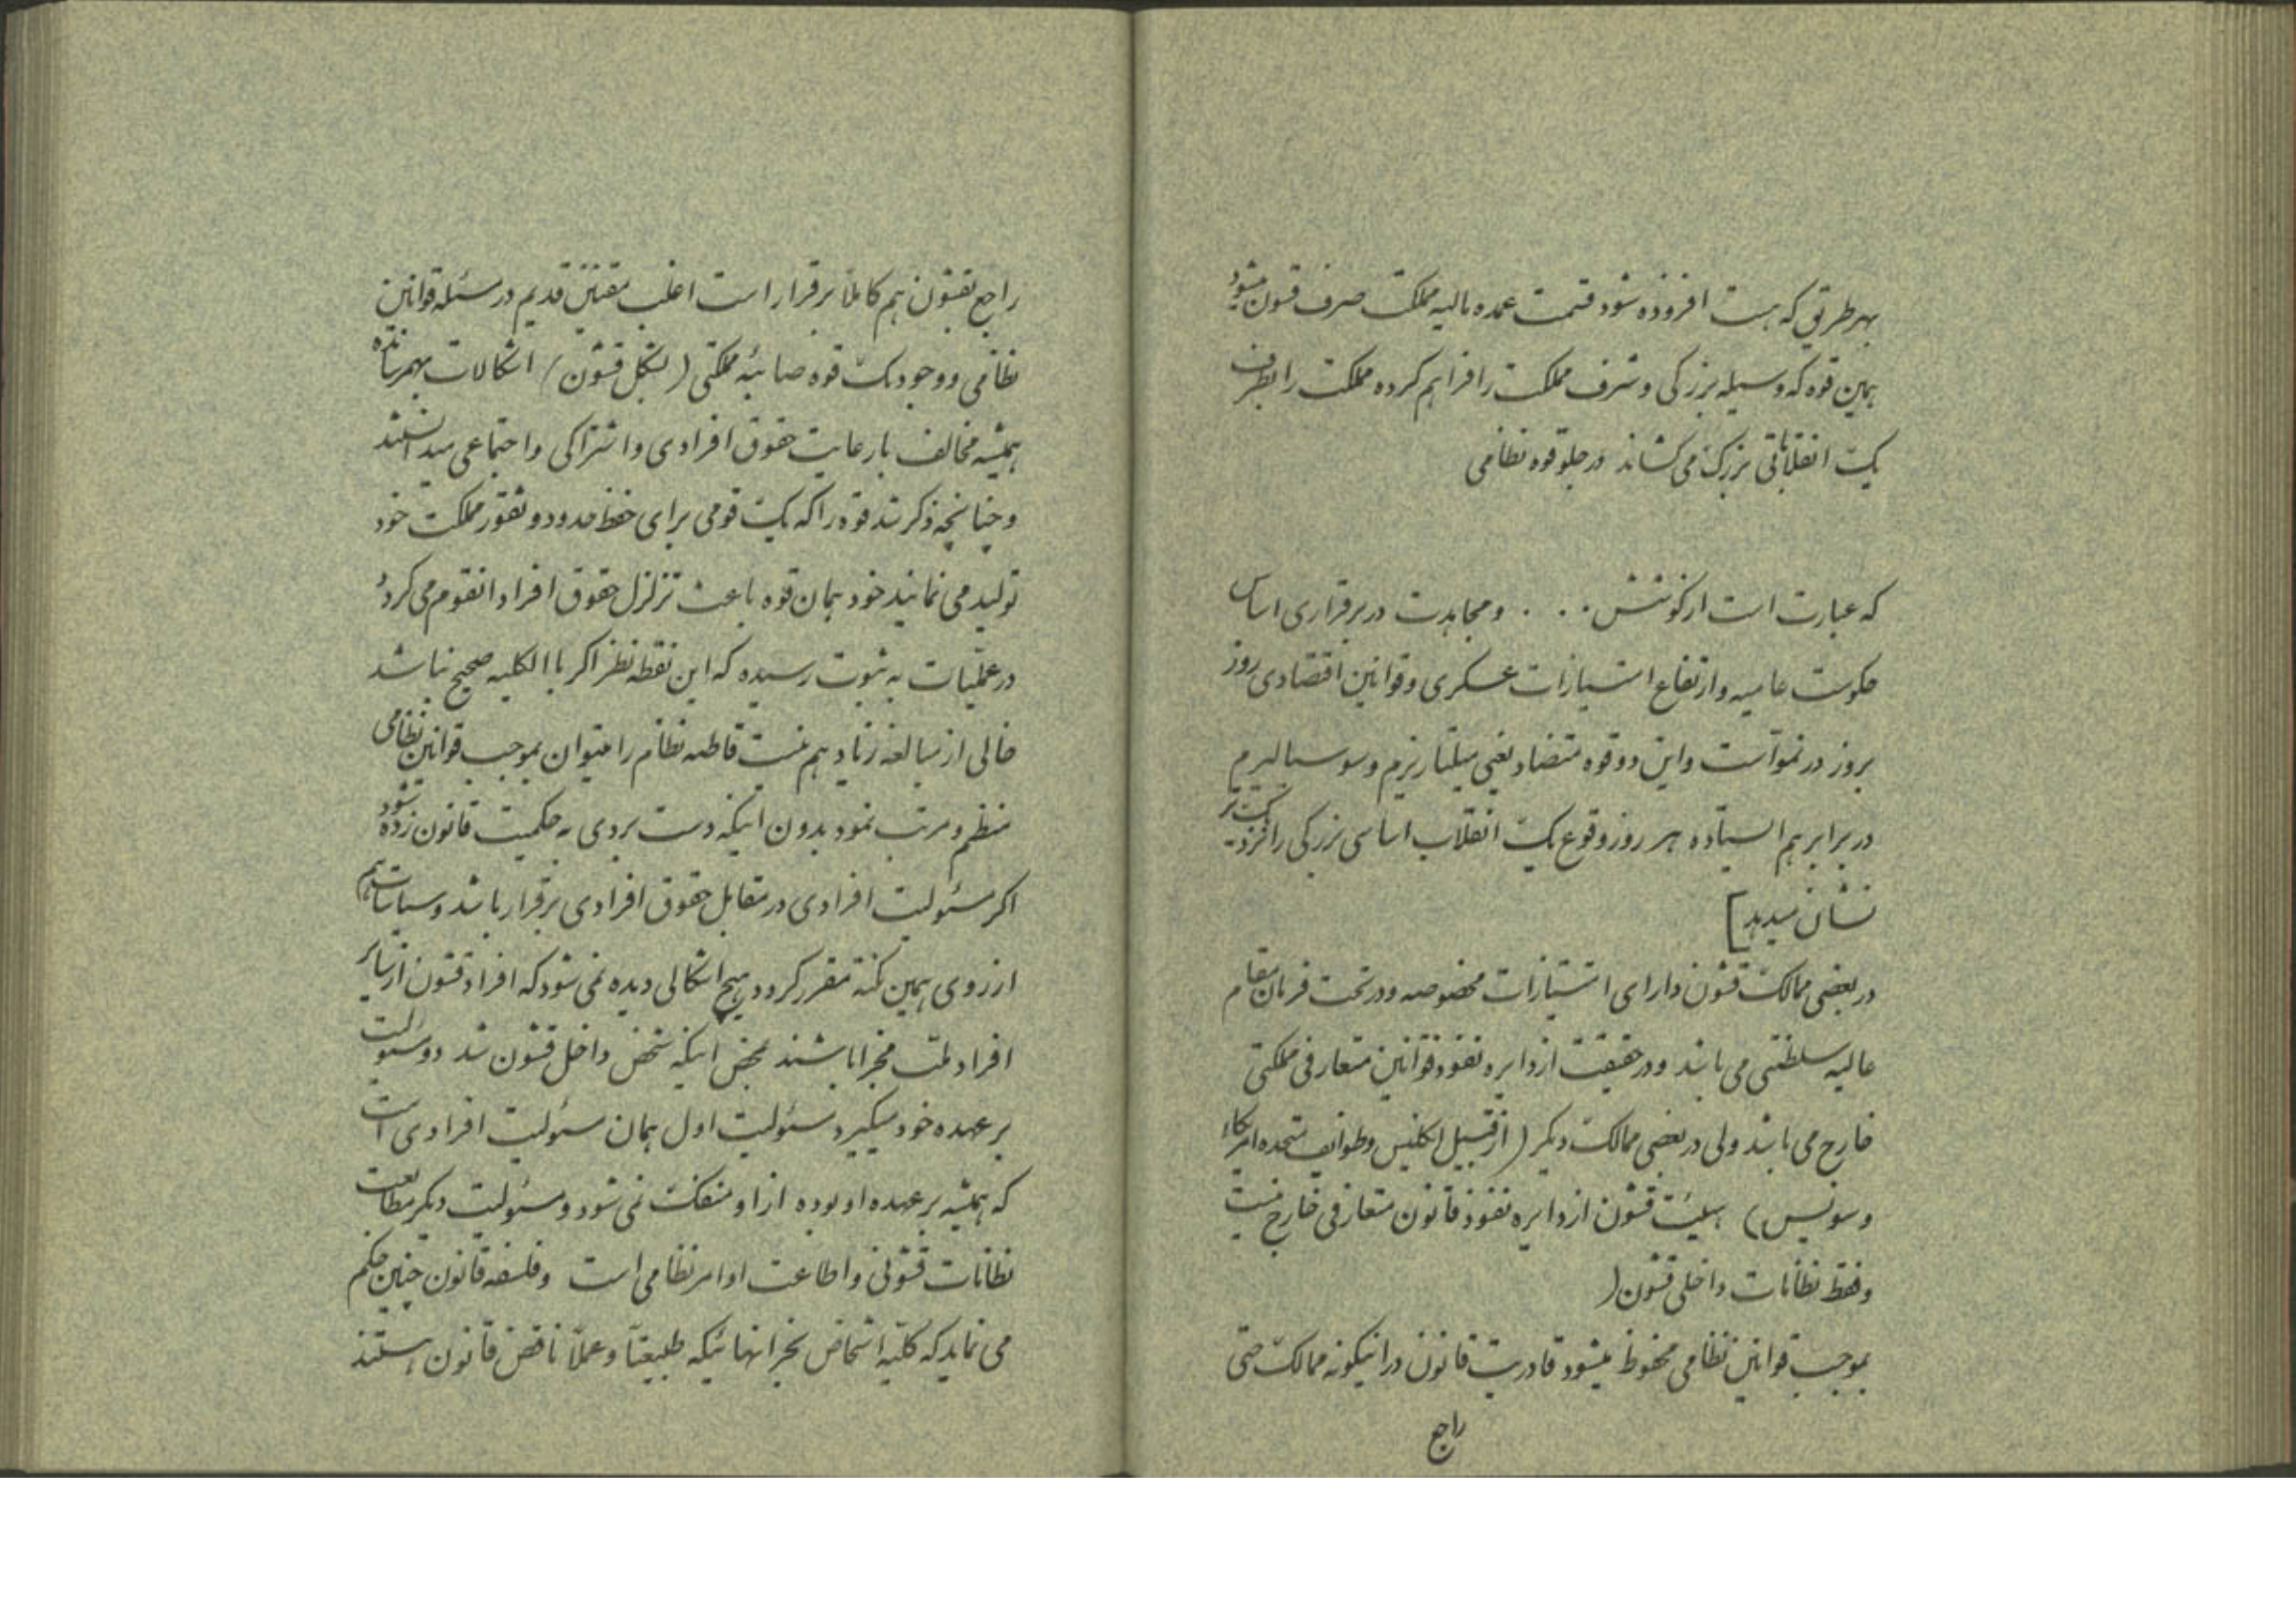 بهر طریق که هست افزوده شود قسمت عمده مالیه مملکت صرف قشون میشود
همین قوه که وسیله بزرگی و شرف مملکت را فراهم کرده مملکت را بطرف
یک انقلاباتی بزرگ می کشاند در جلو قوه نظامی
که عبارت است از کوشش . . . و مجاهدت در برقراری اساس
حکومت عامیه و ارتفاع امتیازات عسکری و قوانین اقتصادی روز
بروز در نمو است و این دو قوه متضاد یعنی میلیتاریزم و سوسیالیزم
در برابر هم ایستاده هر روز وقوع یک انقلاب اساسی بزرگی را نزدیکتر
نشان میدهد]
در بعضی ممالک قشون دارای امتیازات مخصوصه و در تحت فرمان مقام
عالیه سلطنتی می باشد و در حقیقت از دایره نفوذ قوانین متعارفی مملکتی
خارج می باشد ولی در بعضی ممالک دیگر (از قبیل انگلیس و طوایف متحده امریکا
و سویس) هیئت قشون از دایره نفوذ قانون متعارفی خارج نیست
و فقط نظامات داخلی قشون (
بموجب قوانین نظامی محفوظ میشود قادریت قانون در اینگونه ممالک حتی
راجع
راجع بقشون هم کاملاً برقرار است اغلب مقننین قدیم در مسئله قوانین
نظامی و وجود یک قوه صائبهٔ مملکتی (بشکل قشون) اشکالات بهمرسانده
همیشه مخالف با رعایت حقوق افرادی و اشتراکی و اجتماعی میدانستند
و چنانچه ذکر شد قوه را که یک قومی برای حفظ حدود و ثغور مملکت خود
تولید می نمایند خود همان قوه باعث تزلزل حقوق افراد انقوم می گردد
در عملیات به ثبوت رسیده که این نقطه نظر اگر باالکلیه صحیح نباشد
خالی از مبالغه زیاد هم نیست قاطبه نظام را میتوان بموجب قوانین نظامی
منظم و مرتب نمود بدون اینکه دست بردی به حکمیت قانون زده شود
اگر مسئولیت افرادی در مقابل حقوق افرادی برقرار باشد و سیاسات هم
از روی همین نکته مقرر گردد هیچ اشکالی دیده نمی شود که افراد قشون از سایر
افراد ملت مجزا باشند بمحض اینکه شخص داخل قشون شد دو مسئولیت
بر عهده خود میگیرد مسئولیت اول همان مسئولیت افرادی است
که همیشه بر عهده او بوده از او منفک نمی شود و مسئولیت دیگر متابعت
نظامات قشونی و اطاعت اوامر نظامی است و فلسفه قانون چنین حکم
می نماید که کلیه اشخاص بجز انهائیکه طبیعتاً و عملاً ناقض قانون هستند